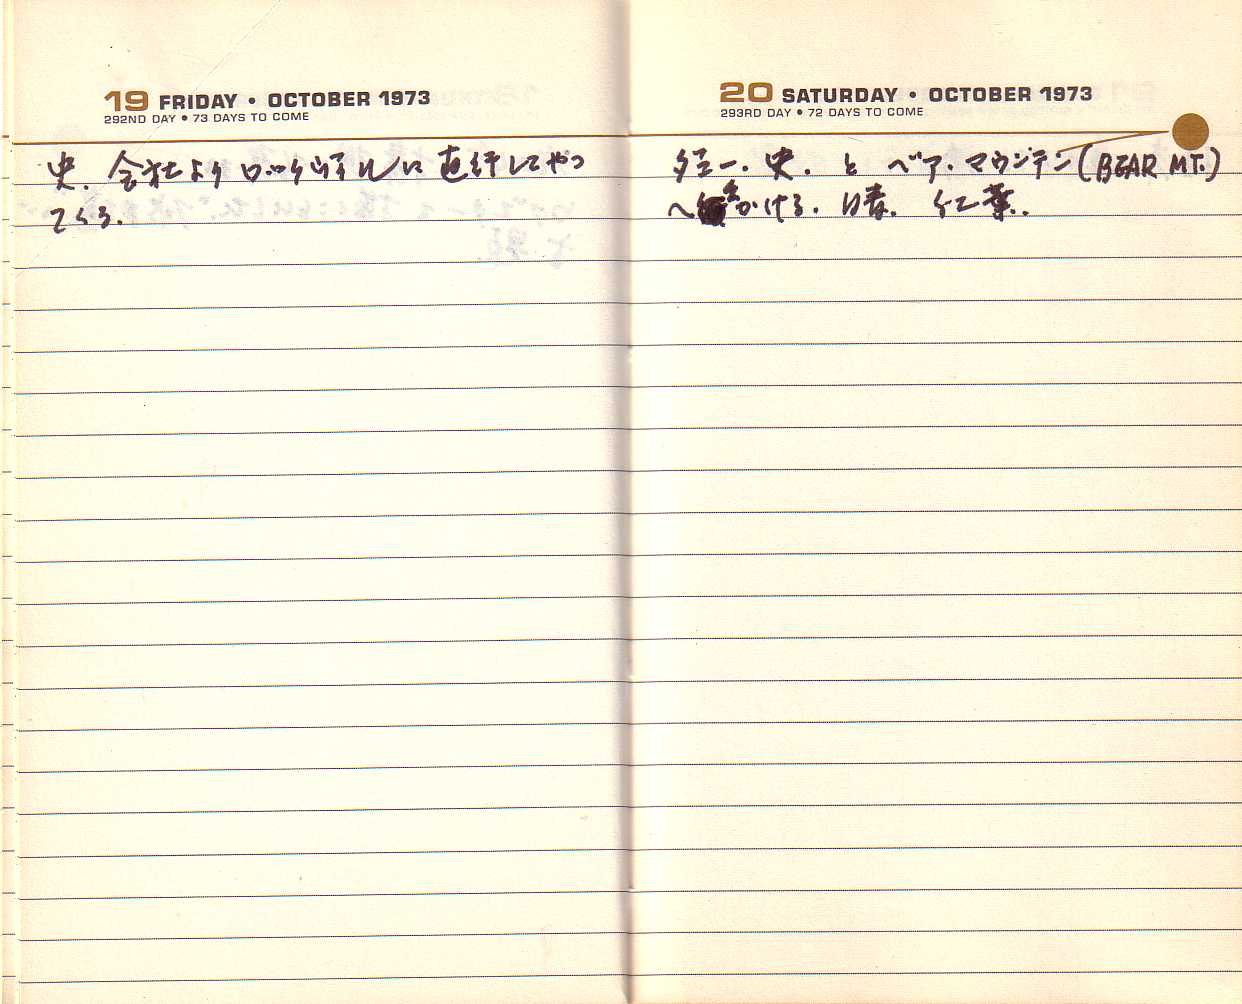 19 FRIDAY • OCTOBER 1973
292ND DAY • 73 DAYS TO COME
史. 会社よりロックヴィルに直行してやっ
てくる.
20 SATURDAY • OCTOBER 1973
293RD DAY • 72 DAYS TO COME
史. と ベア.マウンテン(BEAR MT.)
へ出かける. 紅葉.